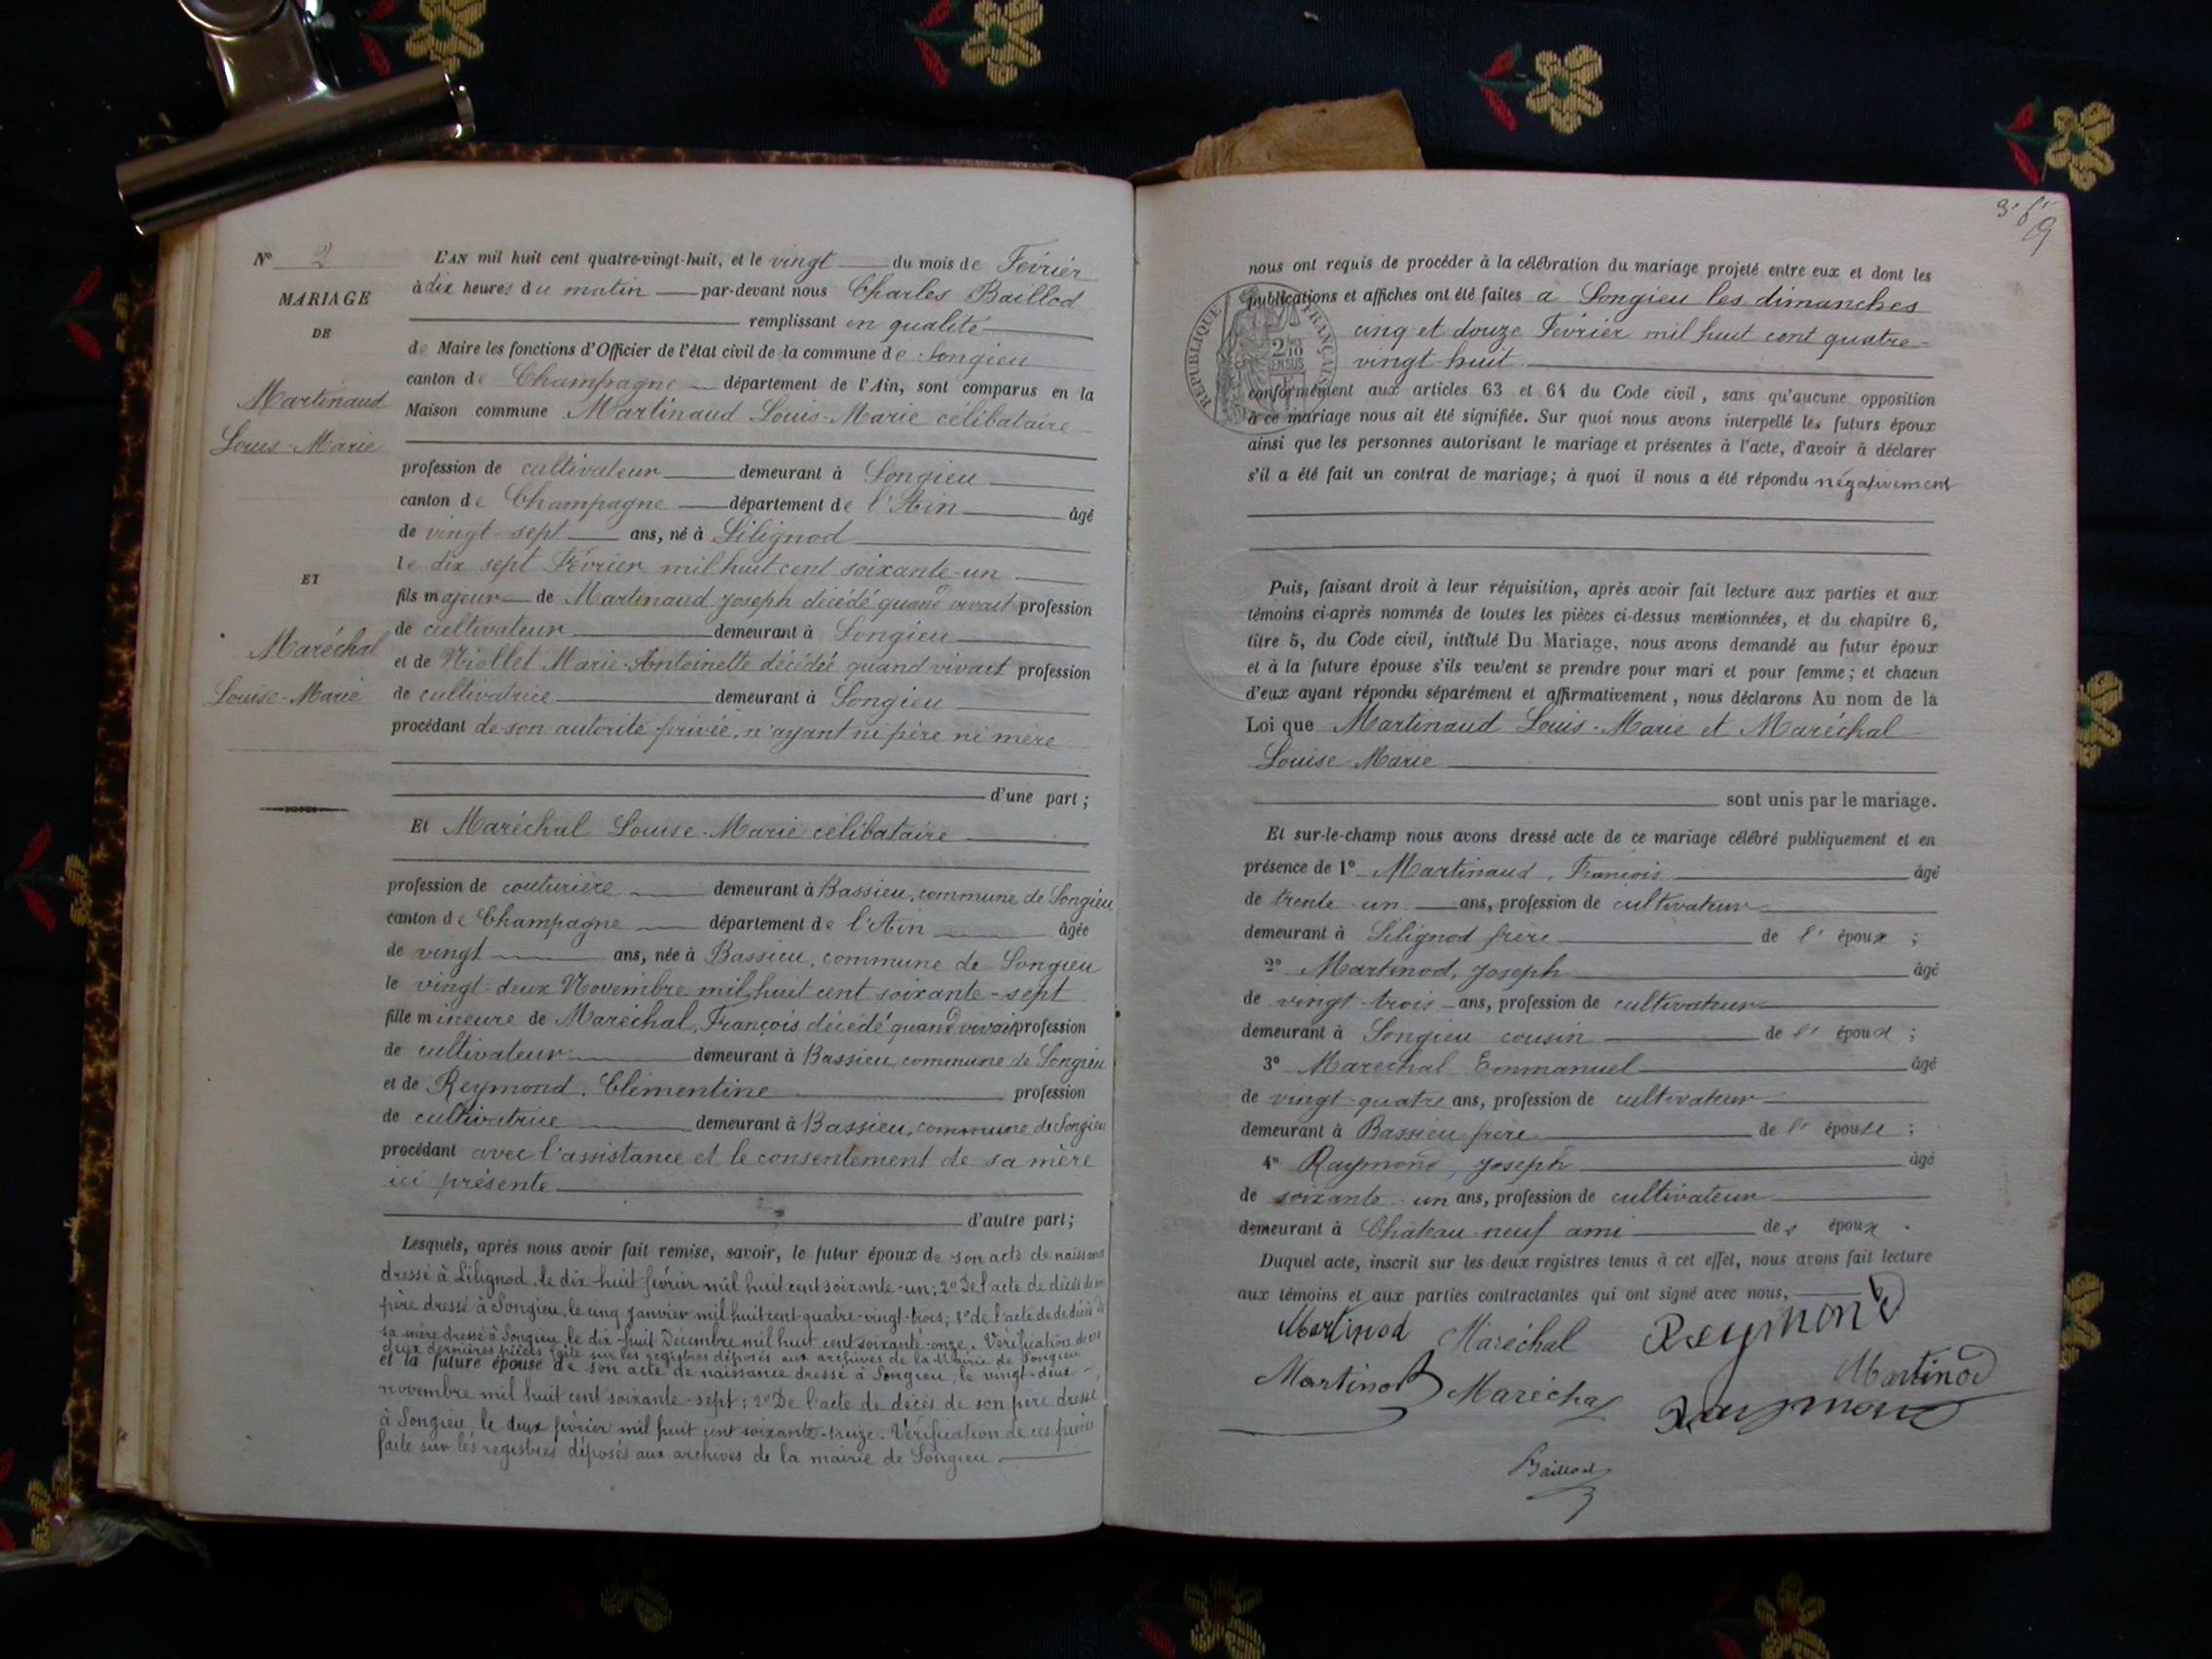 N° 2
MARIAGE
DE
Martinaud
Louis-Marie
ET
Maréchal
Louise-Marie
L'AN mil huit cent quatre-vingt-huit, et le vingt du mois de Février
à dix heures du matin par-devant nous Charles Baillod
remplissant en qualité
de Maire les fonctions d'Officier de l'état civil de la commune de Songieu
canton de Champagne département de l'Ain, sont comparus en la
Maison commune Martinaud Louis-Marie célibataire
profession de cultivateur demeurant à Songieu
canton de Champagne département de l'Ain âgé
de vingt-sept ans, né à Lilignod
le dix sept Février mil huit cent soixante-un
fils majeur de Martinaud Joseph décédé quand vivait profession
de cultivateur demeurant à Songieu
et de Niollet Marie-Antoinette décédée quand vivait profession
de cultivatrice demeurant à Songieu
procédant de son autorité privée, n'ayant ni père ni mère
d'une part;
Et Maréchal Louise-Marie célibataire
profession de couturière demeurant à Bassieu, commune de Songieu
canton de Champagne département de l'Ain âgée
de vingt ans, née à Bassieu, commune de Songieu
le vingt-deux Novembre mil huit cent soixante-sept
fille mineure de Maréchal, François décédé quand vivait profession
de cultivateur demeurant à Bassieu, commune de Songieu
et de Reymond, Clémentine profession
de cultivatrice demeurant à Bassieu, commune de Songieu
procédant avec l'assistance et le consentement de sa mère
ici présente
d'autre part;
Lesquels, après nous avoir fait remise, savoir, le futur époux de son acte de naissance
dressé à Lilignod, le dix-huit février mil huit cent soixante-un; 2° De l'acte de décès de son
père dressé à Songieu, le cinq Janvier mil huit cent quatre-vingt-trois; 3° de l'acte de décès de
sa mère dressé à Songieu le dix-huit Décembre mil huit cent soixante-onze. Vérification de ces
deux dernières pièces faite sur les registres déposés aux archives de la Mairie de Songieu
et la future épouse de son acte de naissance dressé à Songieu, le vingt-deux
novembre mil huit cent soixante-sept; 2° De l'acte de décès de son père dressé
à Songieu le deux février mil huit cent soixante-treize. Vérification de ces pièces
faite sur les registres déposés aux archives de la mairie de Songieu
nous ont requis de procéder à la célébration du mariage projeté entre eux et dont les
publications et affiches ont été faites à Songieu les dimanches
cinq et douze Février mil huit cent quatre-
vingt-huit
RÉPUBLIQUE FRANÇAISE
conformément aux articles 63 et 64 du Code civil, sans qu'aucune opposition
à ce mariage nous ait été signifiée. Sur quoi nous avons interpellé les futurs époux
ainsi que les personnes autorisant le mariage et présentes à l'acte, d'avoir à déclarer
s'il a été fait un contrat de mariage; à quoi il nous a été répondu négativement
Puis, faisant droit à leur réquisition, après avoir fait lecture aux parties et aux
témoins ci-après nommés de toutes les pièces ci-dessus mentionnées, et du chapitre 6,
titre 5, du Code civil, intitulé Du Mariage, nous avons demandé au futur époux
et à la future épouse s'ils veulent se prendre pour mari et pour femme; et chacun
d'eux ayant répondu séparément et affirmativement, nous déclarons Au nom de la
Loi que Martinaud Louis-Marie et Maréchal
Louise-Marie
sont unis par le mariage.
Et sur-le-champ nous avons dressé acte de ce mariage célébré publiquement et en
présence de 1° Martinaud, François âgé
de trente-un ans, profession de cultivateur
demeurant à Lilignod frère de l'époux;
2° Martinod, Joseph âgé
de vingt-trois ans, profession de cultivateur
demeurant à Songieu cousin de l'époux;
3° Marechal Emmanuel âgé
de vingt-quatre ans, profession de cultivateur
demeurant à Bassieu frère de l'épouse;
4° Raymond, Joseph âgé
de soixante-un ans, profession de cultivateur
demeurant à Châteauneuf ami des époux.
Duquel acte, inscrit sur les deux registres tenus à cet effet, nous avons fait lecture
aux témoins et aux parties contractantes qui ont signé avec nous.
Martinod Maréchal Reymond
Martinod Maréchal Martinod
Raymond
Baillod